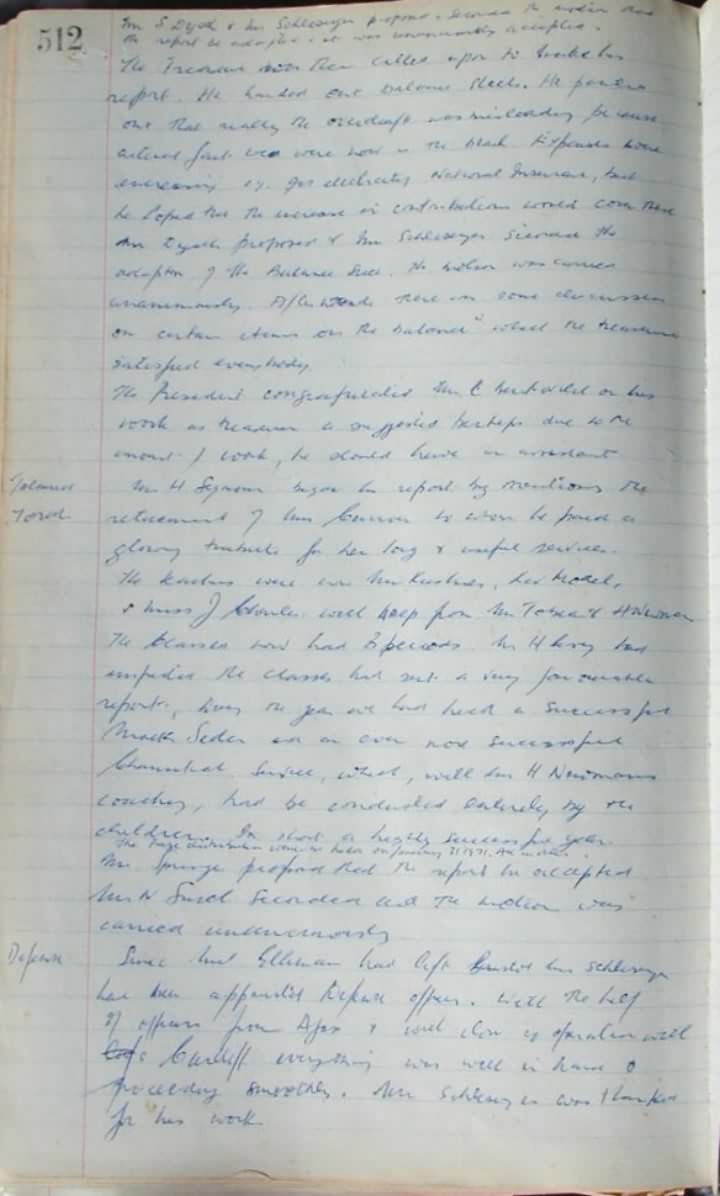 512
Mr S Dysch & Mr Schlesinger proposed & seconded the motion that
the report be adopted & it was unanimously accepted.
The Treasurer was then called upon to make his
report. He handed out balance sheets. He pointed
out that really the overdraft was misleading because
actual fact we were now in the black. Expenses were
increasing eg. for electricity National Insurance, but
he hoped that the increase in contributions would cover these
Mr Dysch proposed & Mr Schlesinger second the
adoption of the Balance Sheet. The motion was carried
unanimously. Afterwards there was some discussion
on certain items on the balance which the treasurer
satisfied everybody.
The President congratulated Mr C on his
work as treasurer & suggested perhaps due to the
amount of work, he should have an assistant
Talmud
Torah
Mr H Seymour began his report by mentioning the
retirement of Mrs to whom he paid a
glowing tribute for her long & useful services.
The teachers were now Mr Kushner,
& Miss J with help from Mr & H Newman
The classes now had 3 periods. Mr H Levy had
inspected the classes had sent a very favourable
report. the year we had held a successful
Mock Seder and an even more successful
Chanukah Service, which, with Mr H Newmans
coaching, had be conducted entirely by the
children. In short a highly successful year.
The Prize distribution would be held on January 31 1971.
Mr Springe proposed that the report be accepted
Mr N seconded and the motion was
carried unanimously
Defense
Since Mr Ellman had left Bristol Mr Schlesinger
had been appointed Defense officer. With the help
of officers from Ajex & with close co operation with
Cardiff everything was well in hand &
proceeding smoothly. Mr Schlesinger was thanked
for his work